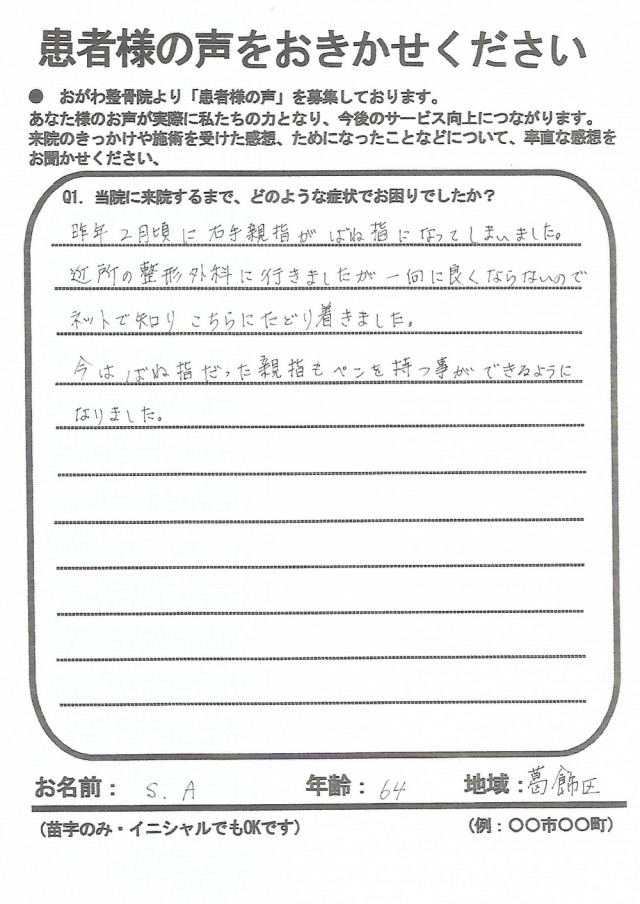 患者様の声をおきかせください
● おがわ整骨院より「患者様の声」を募集しております。
あなた様のお声が実際に私たちの力となり、今後のサービス向上につながります。
来院のきっかけや施術を受けた感想、ためになったことなどについて、率直な感想を
お聞かせください、
Q1. 当院に来院するまで、どのような症状でお困りでしたか？
昨年2月頃に右手親指がばね指になってしまいました。
近所の整形外科に行きましたが一向に良くならないので
ネットで知りこちらにたどり着きました。
今はばね指だった親指もペンを持つ事ができるように
なりました。
お名前： S. A 年齢： 64 地域：葛飾区
（苗字のみ・イニシャルでもOKです） （例：〇〇市〇〇町）